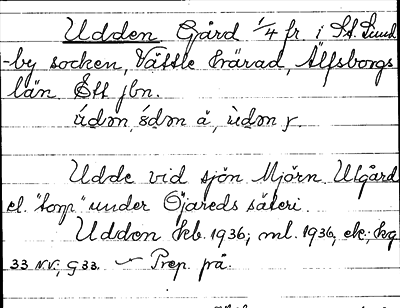 Udden Gård 1/4 fr. i St. Lund-
-by socken, Vättle härad, Älfsborgs
län. Ett jbn.
údən, śdən å, ùdən y.
Udde vid sjön Mjörn. Utgård
el. "torp" under Öjareds säteri.
Udden kb. 1936; ml. 1936, ek; hg
33 NV; G33. Prep. på.